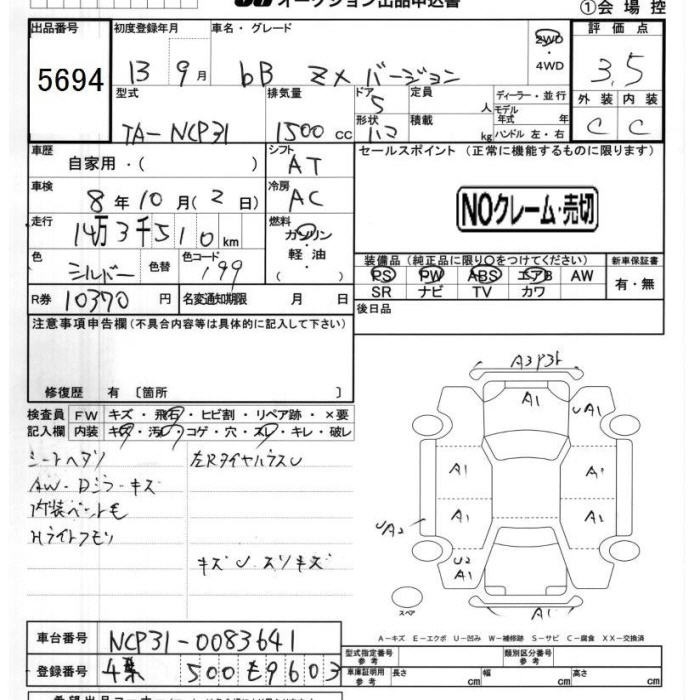 オークション出品申込書
①会場控
出品番号 初度登録年月 車名・グレード 評価点
5694 13 9月 bB ZXバージョン 2WD・4WD 3.5
型式 排気量 ドア 5 定員 人 ディーラー・並行 外装 内装
TA-NCP31 1500cc 形状 積載 kg モデル年式 年 ハンドル 左・右 C C
車歴 シフト セールスポイント (正常に機能するものに限ります)
自家用・( ) AT
車検 8年10月(2日) 冷房 AC
NOクレーム・売切
走行 14万3千510km 燃料 ガソリン・軽油・( )
色 シルバー 色替 色コード 199
装備品 (純正品に限り○をつけてください) 新車保証書
PS PW ABS エアB AW 有・無
SR ナビ TV カワ
R券 10370円 名変通知期限 月 日
後日品
注意事項申告欄 (不具合内容等は具体的に記入して下さい)
修復歴 有 〔箇所 〕
検査員 FW キズ・飛石・ヒビ割・リペア跡・×要
記入欄 内装 キズ・汚れ・コゲ・穴・スレ・キレ・破レ
シートヘタリ
AW・Dミラーキズ
Hライトクモリ
キズ U スリキズ
A1
A1 UA1
A1 A1
A1 A1
UA2
U2
A1
スペア
A1
A-キズ E-エクボ U-凹み W-補修跡 S-サビ C-腐食 XX-交換済
車台番号 NCP31-0083641
登録番号 500 も 9603
型式指定番号 参考 類別区分番号 参考
車庫証明用 参考 長さ cm 幅 cm 高さ cm